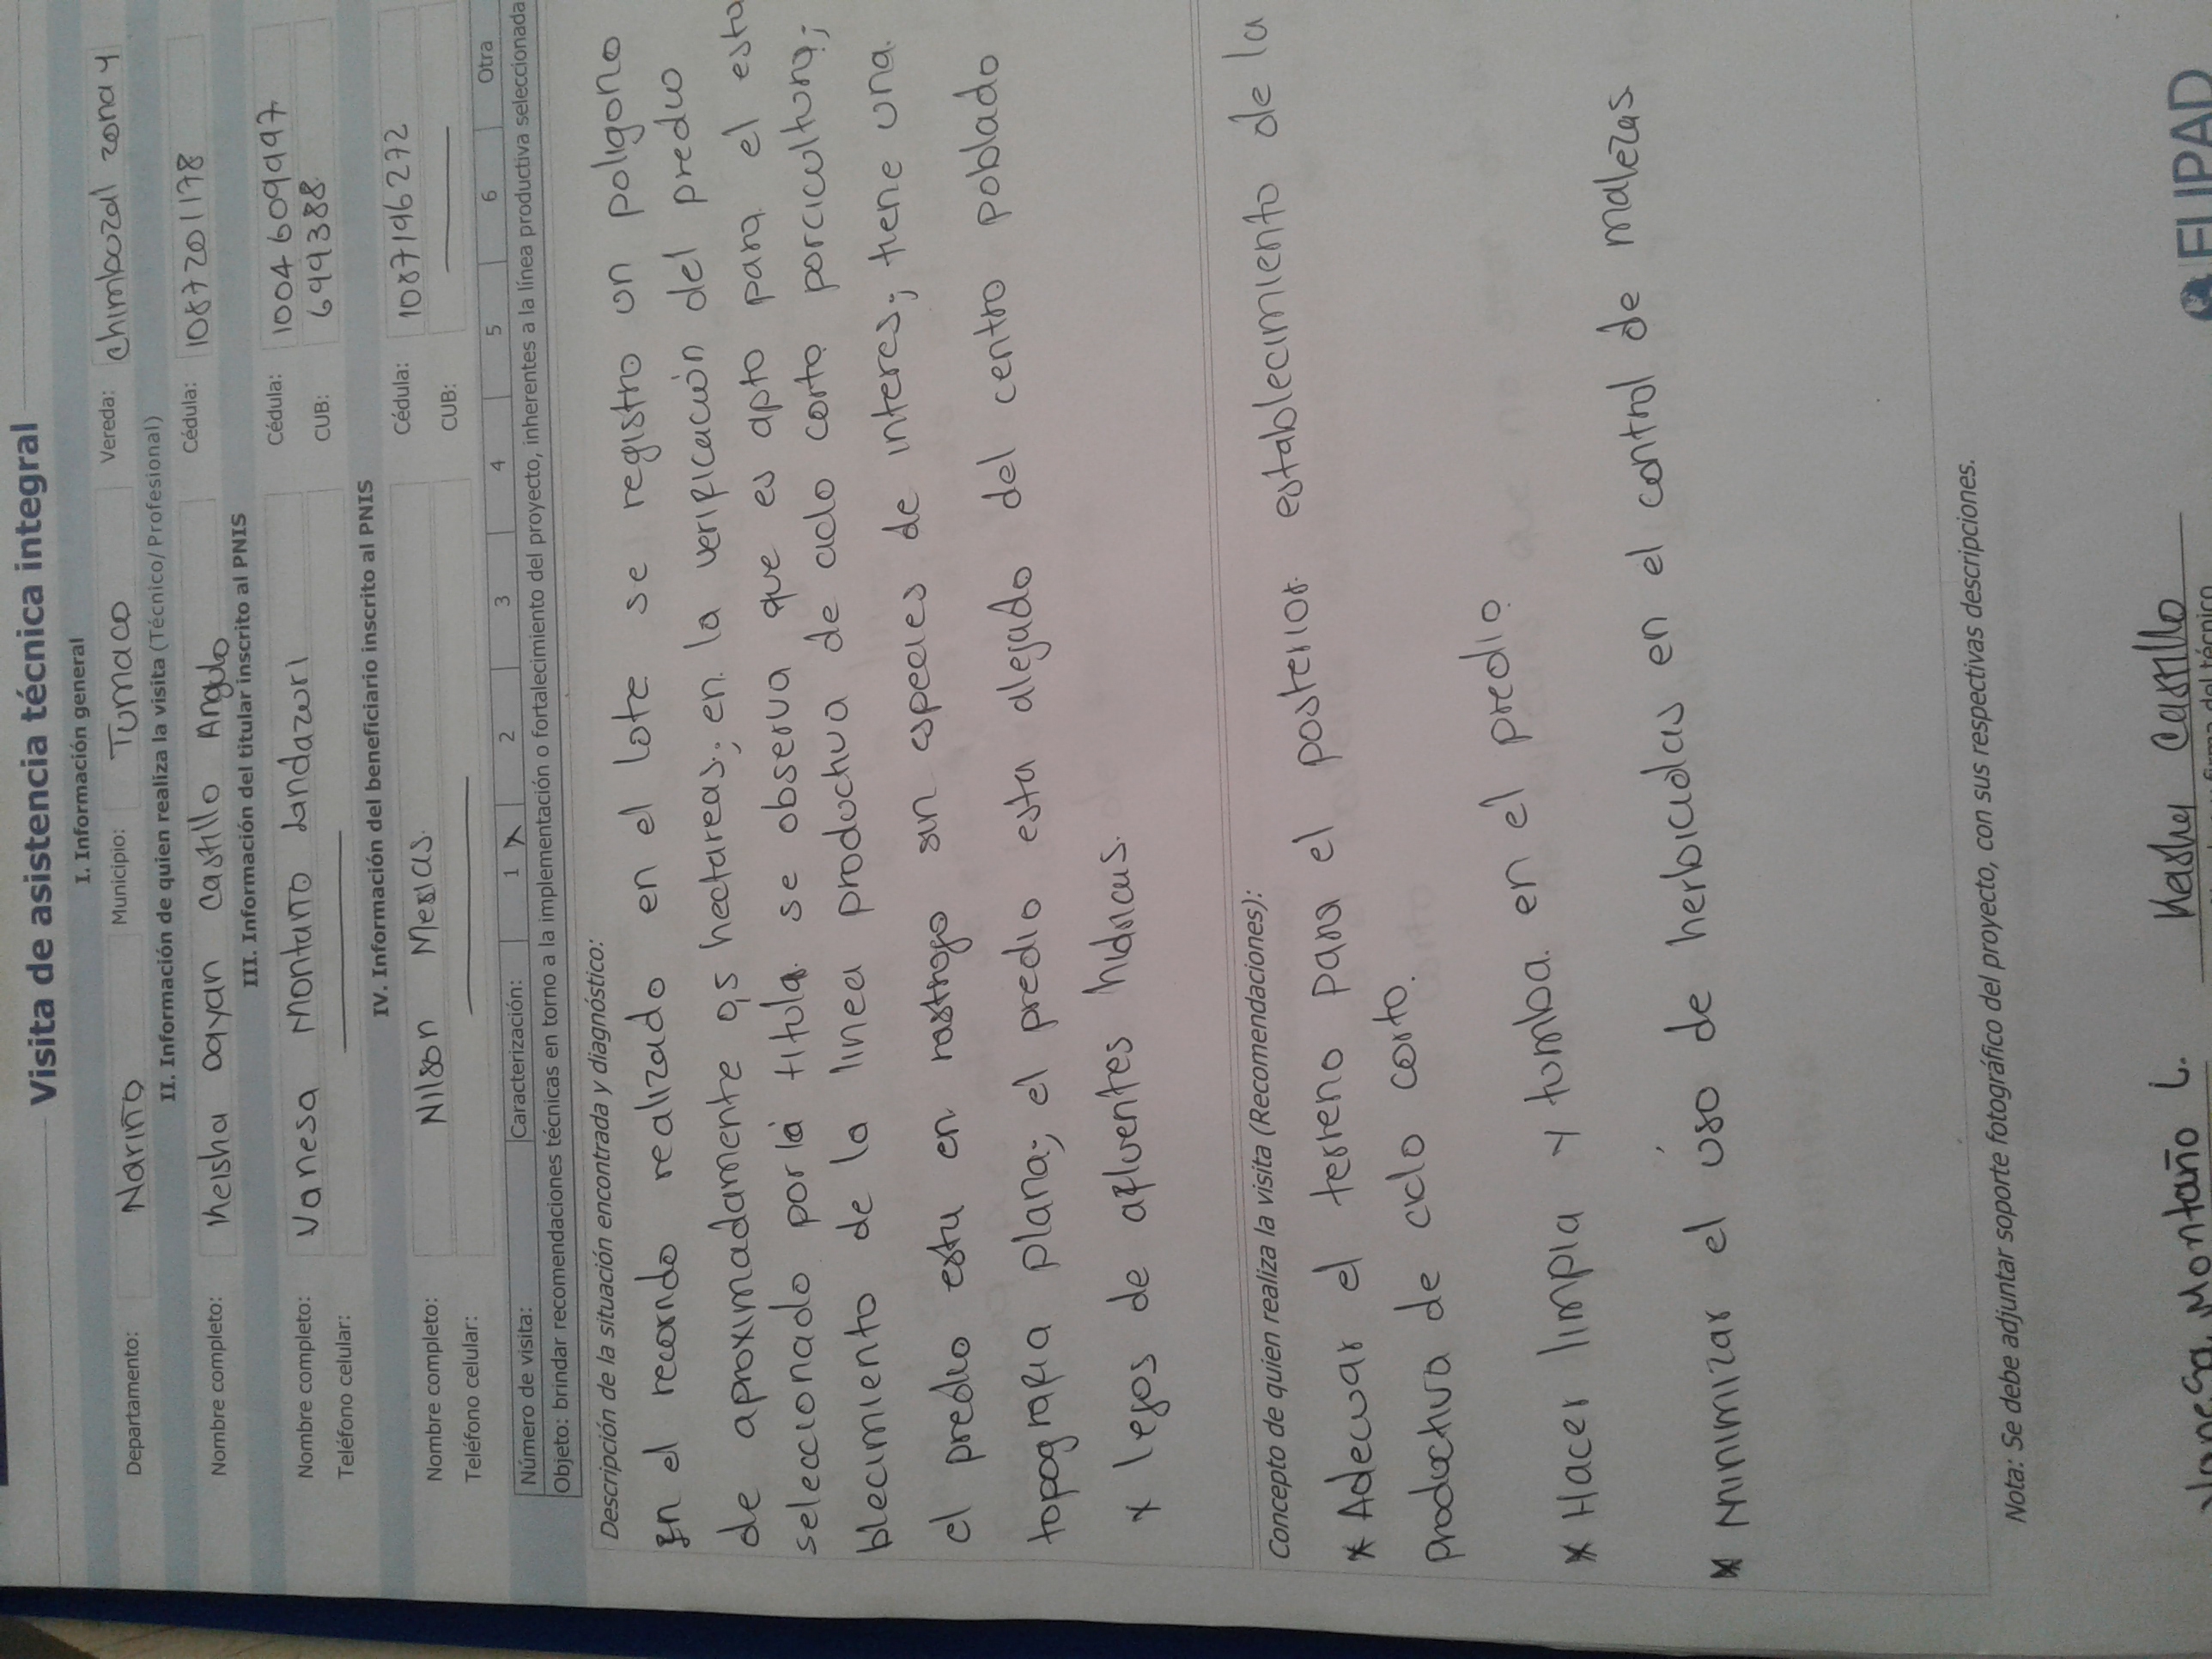 Visita de asistencia técnica integral
I. Información general
Departamento: Nariño Municipio: Tumaco Vereda: Chimbuzal zona 4
II. Información de quien realiza la visita (Técnico/ Profesional)
Nombre completo: Keisha Dayan Castillo Angulo Cédula: 1087201178
III. Información del titular inscrito al PNIS
Nombre completo: Vanesa Montaño Landazuri Cédula: 1004609997
Teléfono celular: CUB: 699388
IV. Información del beneficiario inscrito al PNIS
Nombre completo: Nilson Mesias. Cédula: 1087196272
Teléfono celular: CUB:
Número de visita: Caracterización: 1 X 2 3 4 5 6 Otra
Objeto: brindar recomendaciones técnicas en torno a la implementación o fortalecimiento del proyecto, inherentes a la línea productiva seleccionada
Descripción de la situación encontrada y diagnóstico:
En el recorrido realizado en el lote se registro un poligono
de aproximadamente 0,5 hectareas; en la verificación del predio
seleccionado por la titular se observa que es apto para el esta
blecimiento de la linea productiva de ciclo corto porcicultura;
el predio esta en rastrojo sin especies de interes; tiene una
topografia plana; el predio esta alejado del centro poblado
y lejos de afluentes hidricas.
Concepto de quien realiza la visita (Recomendaciones):
* Adecuar el terreno para el posterior establecimiento de la
productiva de ciclo corto.
* Hacer limpia y tumba en el predio
* Minimizar el uso de herbicidas en el control de malezas
Nota: Se debe adjuntar soporte fotográfico del proyecto, con sus respectivas descripciones.
Vanesa Montaño L. Keisha Castillo
firma del técnico
FUPAD